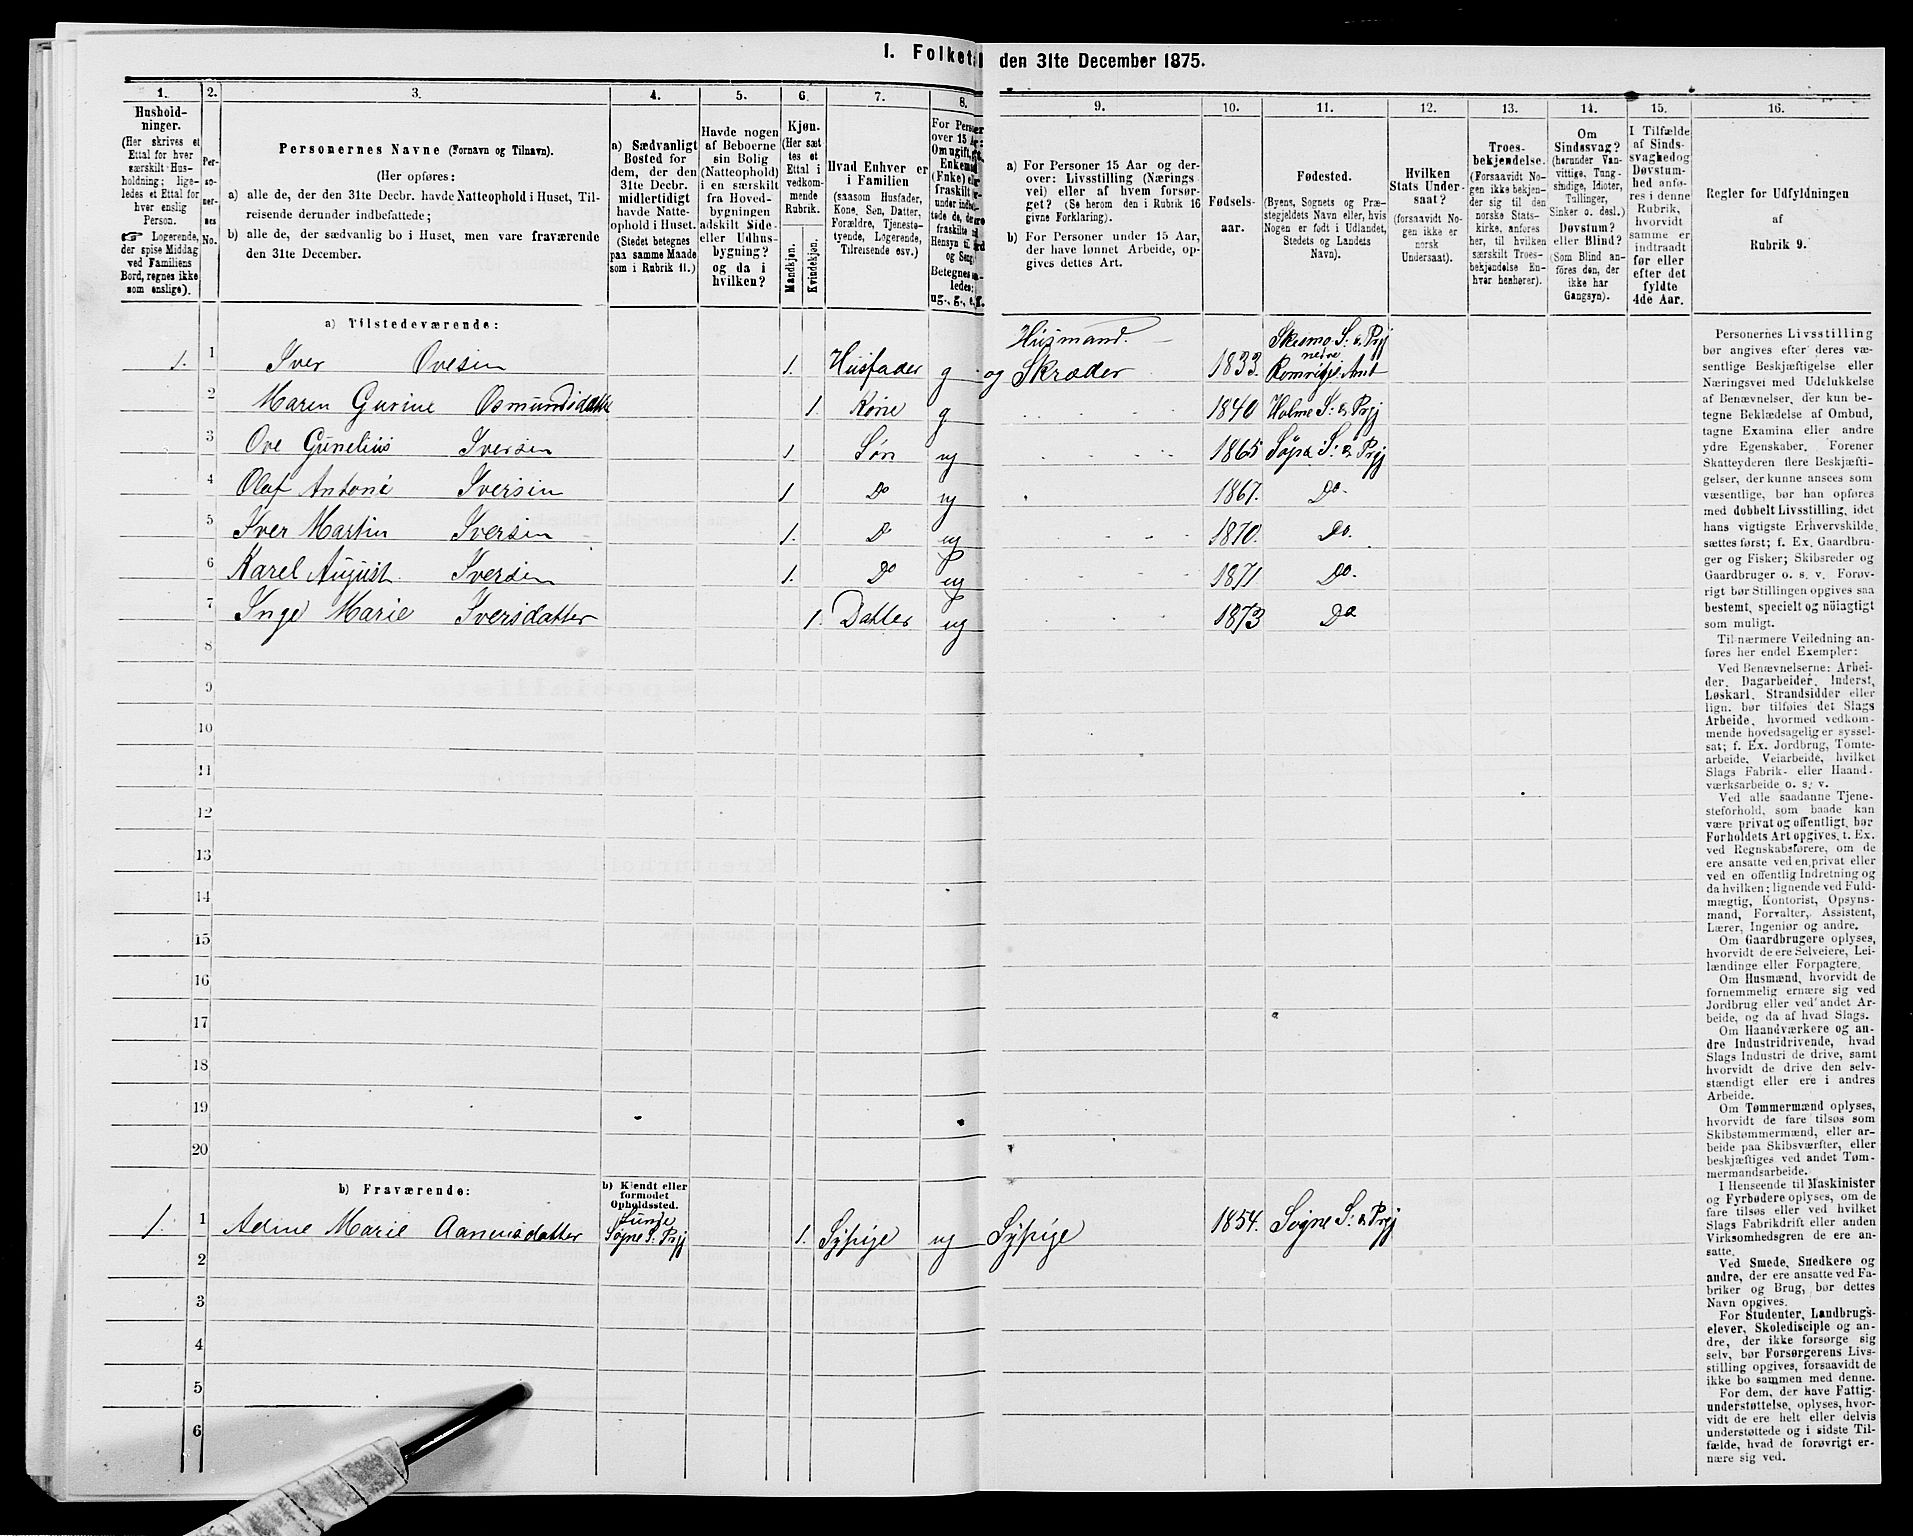 I. Folketal den 31te December 1875.
1. 2. 3. 4. 5. 6. 7. 8. 9. 10. 11. 12. 13. 14. 15. 16.
Hushold-
ninger.
(Her skrives et
Ettal for hver
særskilt Hus-
holdning; lige-
ledes et Ettal for
hver enslig
Person.
☞ Logerende,
der spise Middag
ved Familiens
Bord, regnes ikke
som enslige).
Per-
so-
ner-
nes
No.
Personernes Navne (Fornavn og Tilnavn).
(Her opføres:
a) alle de, der den 31te Decbr. havde Natteophold i Huset, Til-
reisende derunder indbefattede;
b) alle de, der sædvanlig bo i Huset, men vare fraværende
den 31te December.
a) Sædvanligt
Bosted for
dem, der den
31te Decbr.
midlertidigt
havde Natte-
ophold i Huset.
(Stedet betegnes
paa samme Maade
som i Rubrik 11.)
Havde nogen
af Beboerne
sin Bolig
(Natteophold)
i en særskilt
fra Hoved-
bygningen
adskilt Side-
eller Udhus-
bygning?
og da i
hvilken?
Kjøn.
(Her sæt
tes et
Ettal i
vedkom-
mende
Rubrik.
Mandkjøn.
Kvindekjøn.
Hvad Enhver er
i Familien
(saasom Husfader,
Kone, Søn, Datter,
Forældre, Tjeneste-
tyende, Logerende,
Tilreisende osv.)
For Personer
over 15 Aar:
Om ugift, gift,
Enkemand
(Enke) eller
fraskilt
ledes:
ug., g., e., f.
a) For Personer 15 Aar og der-
over: Livsstilling (Nærings
vei) eller af hvem forsør-
get? (Se herom den i Rubrik 16
givne Forklaring).
b) For Personer under 15 Aar,
der have lønnet Arbeide, op-
gives dettes Art.
Fødsels-
aar.
Fødested.
(Byens, Sognets og Præ-
stegjeldets Navn eller, hvis
Nogen er født i Udlandet,
Stedets og Landets
Navn).
Hvilken
Stats Under-
saat?
(forsaavidt No-
gen ikke er
norsk
Undersaat).
Troes-
bekjendelse.
(Forsaavidt No-
gen ikke bekjen-
der sig til den
norske Stats-
kirke, anføres
her, til hvilken
særskilt Troes-
bekjendelse En-
hver henhører).
Om
Sindssvag?
(herunder Van-
vittige, Tung-
sindige, Idioter,
Tullinger,
Sinker o. desl.)
Døvstum?
eller Blind?
(Som Blind an-
føres den, der
ikke har
Gangsyn).
I Tilfælde
af Sinds-
svaghed og
Døvstum-
hed anfø-
res i denne
Rubrik,
hvorvidt
samme er
indtraadt
før eller
efter det
fyldte
4de Aar.
Regler for Udfyldningen
af
Rubrik 9.
a) Tilstedeværende:
1. 1 Iver Ovesen 1. Husfader g Husmand. og Skræder 1833. Skiesmo S. & Prgj nedre Romerigs Amt
2 Maren Gurine Osmundsdatter 1. Kone g 1840 Holme S: & Prgj
3 Ove Gunelius Iversen 1 Søn ug 1865 Søgne S: & Prgj
4 Olaf Antoni Iversen 1 Do ug 1867. Do.
5 Iver Martin Iversen 1. D ug 1870. Do.
6 Karel August Iversen 1. Do ug 1871 Do.
7 Inge Marie Iversdatter 1. Datter ug 1873 Do
8
9
10
11
12
13
14
15
16
17
18
19
20
b) Fraværende:
b) Kjendt eller
formodet
Opholdssted.
1. 1 Adine Marie Aanensdatter Lunde Søgne S: Prgj 1. Sypige ug Sypige 1854. Søgne S: & Prgj
2
3
4
5
6
Personernes Livsstilling
bør angives efter deres væ-
sentlige Beskjæftigelse eller
Næringsvei med Udelukkelse
af Benævnelser, der kun be-
tegne Beklædelse af Ombud,
tagne Examina eller andre
ydre Egenskaber. Forener
Skatteyderen flere Beskjæfti-
gelser, der kunne ansees som
væsentlige, bør han opføres
med dobbelt Livsstilling, idet
hans vigtigste Erhvervskilde
sættes først; f. Ex. Gaardbru-
ger og Fisker; Skibsreder og
Gaardbruger o. s. v. Forøv-
rigt bør Stillingen opgives saa
bestemt, specielt og nöiagtigt
som muligt.
Til nærmere Veiledning an-
føres her endel Exempler:
Ved Benævnelserne: Arbei-
der, Dagarbeider, Inderst,
Løskarl, Strandsidder eller
lign. bør tilføies det Slags
Arbeide, hvormed vedkom-
mende hovedsagelig er syssel-
sat; f. Ex. Jordbrug, Tomte-
arbeide, Veiarbeide, hvilket
Slags Fabrik- eller Haand-
værksarbeide o. s. v.
Ved alle saadanne Tjene-
steforhold, som baade kan
være privat og offentligt, bør
Forholdets Art opgives, t. Ex.
ved Regnskabsførere, om de
ere ansatte ved en privat eller
ved en offentlig Indretning og
da hvilken; lignende ved Fuld-
mægtig, Kontorist, Opsyns-
mand, Forvalter, Assistent,
Lærer, Ingeniør og andre.
Om Gaardbrugere oplyses,
hvorvidt de ere Selveiere, Lei-
lændinge eller Forpagtere.
Om Husmænd, hvorvidt de
fornemmelig ernære sig ved
Jordbrug eller ved andet Ar-
beide, og da af hvad Slags.
Om Haandværkere og an-
dre Industridrivende, hvad
Slags Industri de drive, samt
hvorvidt de drive den selv-
stændigt eller ere i andres
Arbeide.
Om Tømmermænd oplyses,
hvorvidt de fare tilsøs som
Skibstømmermænd, eller ar-
beide paa Skibsværfter, eller
beskjæftiges ved andet Tøm-
mermandsarbeide.
I Henseende til Maskinister
og Fyrbødere oplyses, om de
fare tilsøs eller ved hvilket
Slags Fabrikdrift eller anden
Virksomhedsgren de ere an-
satte.
Ved Smede, Snedkere og
andre, der ere ansatte ved Fa-
briker og Brug, bør dettes
Navn opgives.
For Studenter, Landbrugs-
elever, Skoledisciple og an-
dre, der ikke forsørge sig
selv, bør Forsørgerens Livs-
stilling opgives, forsaavidt de
ikke bo sammen med denne.
For dem, der have Fattig-
understøttelse, oplyses, hvor-
vidt de ere helt eller delvis
understøttede og i sidste Til-
fælde, hvad de forøvrigt er-
nære sig ved.